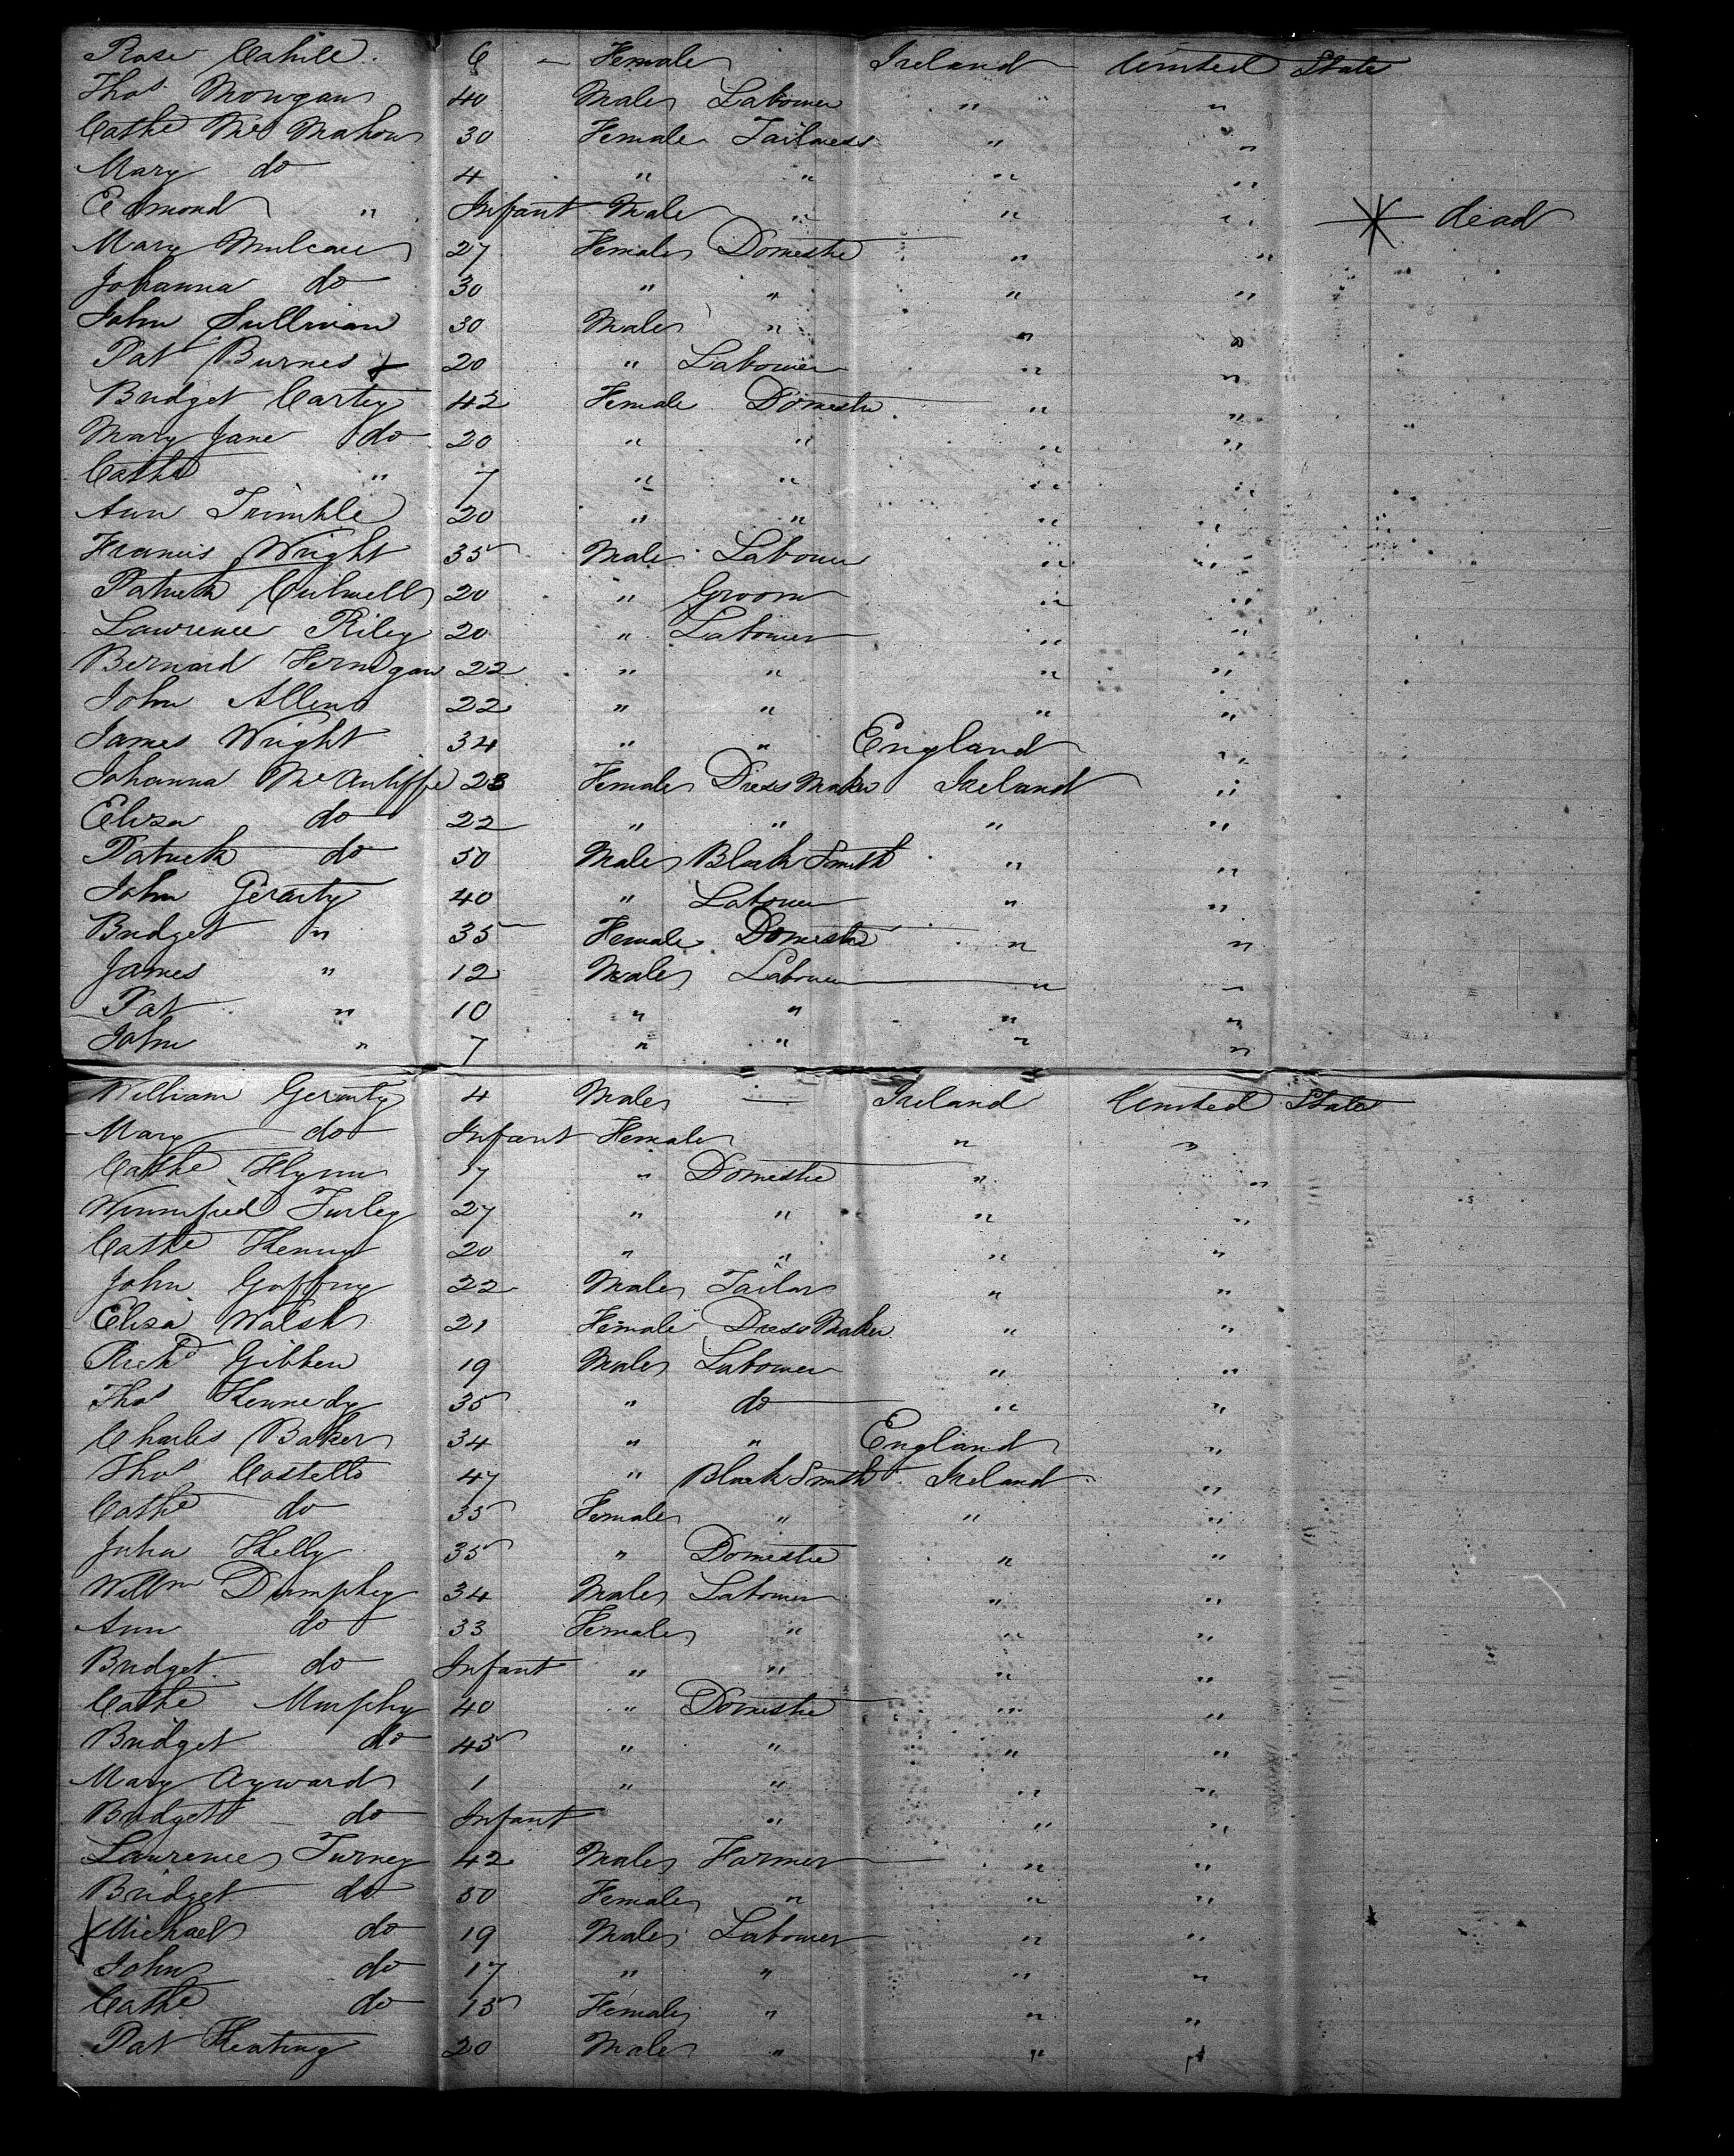 Rose Cahill. 6 — Female Ireland United States
Thos Mongan 40 Male Labourer " "
Cathe McMahon 30 Female Tailoress " "
Mary do 4 " " " "
Edmond " Infant Male " " " * dead
Mary Mulcare 27 Female Domestic " "
Johanna do 30 " " " "
John Sullivan 30 Male " " "
Pat Burnes 20 " Labourer " "
Bridget Cartey 42 Female Domestic " "
Mary Jane do 20 " " " "
Cathe " 7 " " " "
Ann Trimble 20 " " " "
Francis Wright 35 Male Labourer " "
Patrick Culwell 20 " Groom " "
Lawrence Riley 20 " Labourer " "
Bernard Fernigan 22 " " " "
John Allen 22 " " " "
James Wright 34 " " England "
Johanna McAuliffe 23 Female Dress Maker Ireland "
Eliza do 22 " " " "
Patrick do 50 Male Black Smith " "
John Gerarty 40 " Labourer " "
Bridget " 35 Female Domestic " "
James " 12 Male Labourer " "
Pat " 10 " " " "
John " 7 " " " "
William Gerarty 4 Male — Ireland United States
Mary do Infant Female " "
Cathe Flynn 17 " Domestic " "
Winnifred Turley 27 " " " "
Cathe Kenny 20 " " " "
John Gaffney 22 Male Tailor " "
Eliza Walsh 21 Female Dress Maker " "
Richd Gibben 19 Male Labourer " "
Thos Kennedy 35 " do " "
Charles Baker 34 " " England "
Thos Costello 47 " Black Smith Ireland "
Cathe do 35 Female " " "
Julia Kelly 35 " Domestic " "
Willm Dumphey 34 Male Labourer " "
Ann do 33 Female " " "
Bridget do Infant " " " "
Cathe Murphy 40 " Domestic " "
Bridget do 45 " " " "
Mary Ayward 1 " " " "
Bridget do Infant " " "
Lawrence Turney 42 Male Farmer " "
Bridget do 50 Female " " "
Michael do 19 Male Labourer " "
John do 17 " " " "
Cathe do 15 Female " " "
Pat Keating 20 Male " " "